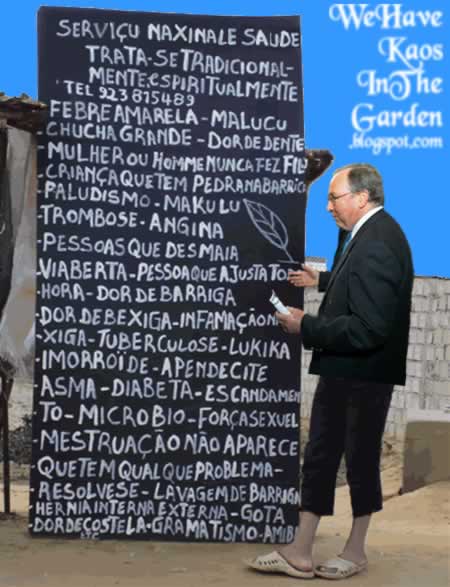 SERVIÇU NAXINALE SAUDE
TRATA-SE TRADICIONAL-
MENTE, ESPIRITUALMENTE
TEL 923 815489
FEBRE AMARELA - MALUCU
CHUCHA GRANDE - DOR DE DENTE
- MULHER OU HOMME NUNCA FEZ FIL
- CRIANÇA QUE TEM PEDRA NA BARRIG
- PALUDISMO - MAKULU
- TROMBOSE - ANGINA
- PESSOAS QUE DESMAIA
VIA BERTA - PESSOA QUE AJUSTA TO
HORA - DOR DE BARRIGA
- DOR DE BEXIGA - INFAMAÇÃO
- XIGA - TUBERCULOSE - LUKIKA
- IMORROÏDE - APENDECITE
- ASMA - DIABETA - ESCANDAMEN
TO - MICROBIO - FORÇA SEXUEL
- MESTRUAÇÃO NÃO APARECE
- QUE TEM QUALQUE PROBLEMA -
- RESOLVESE - LAVAGEM DE BARRIGA
HERNIA INTERNA EXTERNA - GOTA
DOR DE COSTELA - GRAMATISMO - AMIB
ETC
WeHave
Kaos
InThe
Garden
.blogspot.com